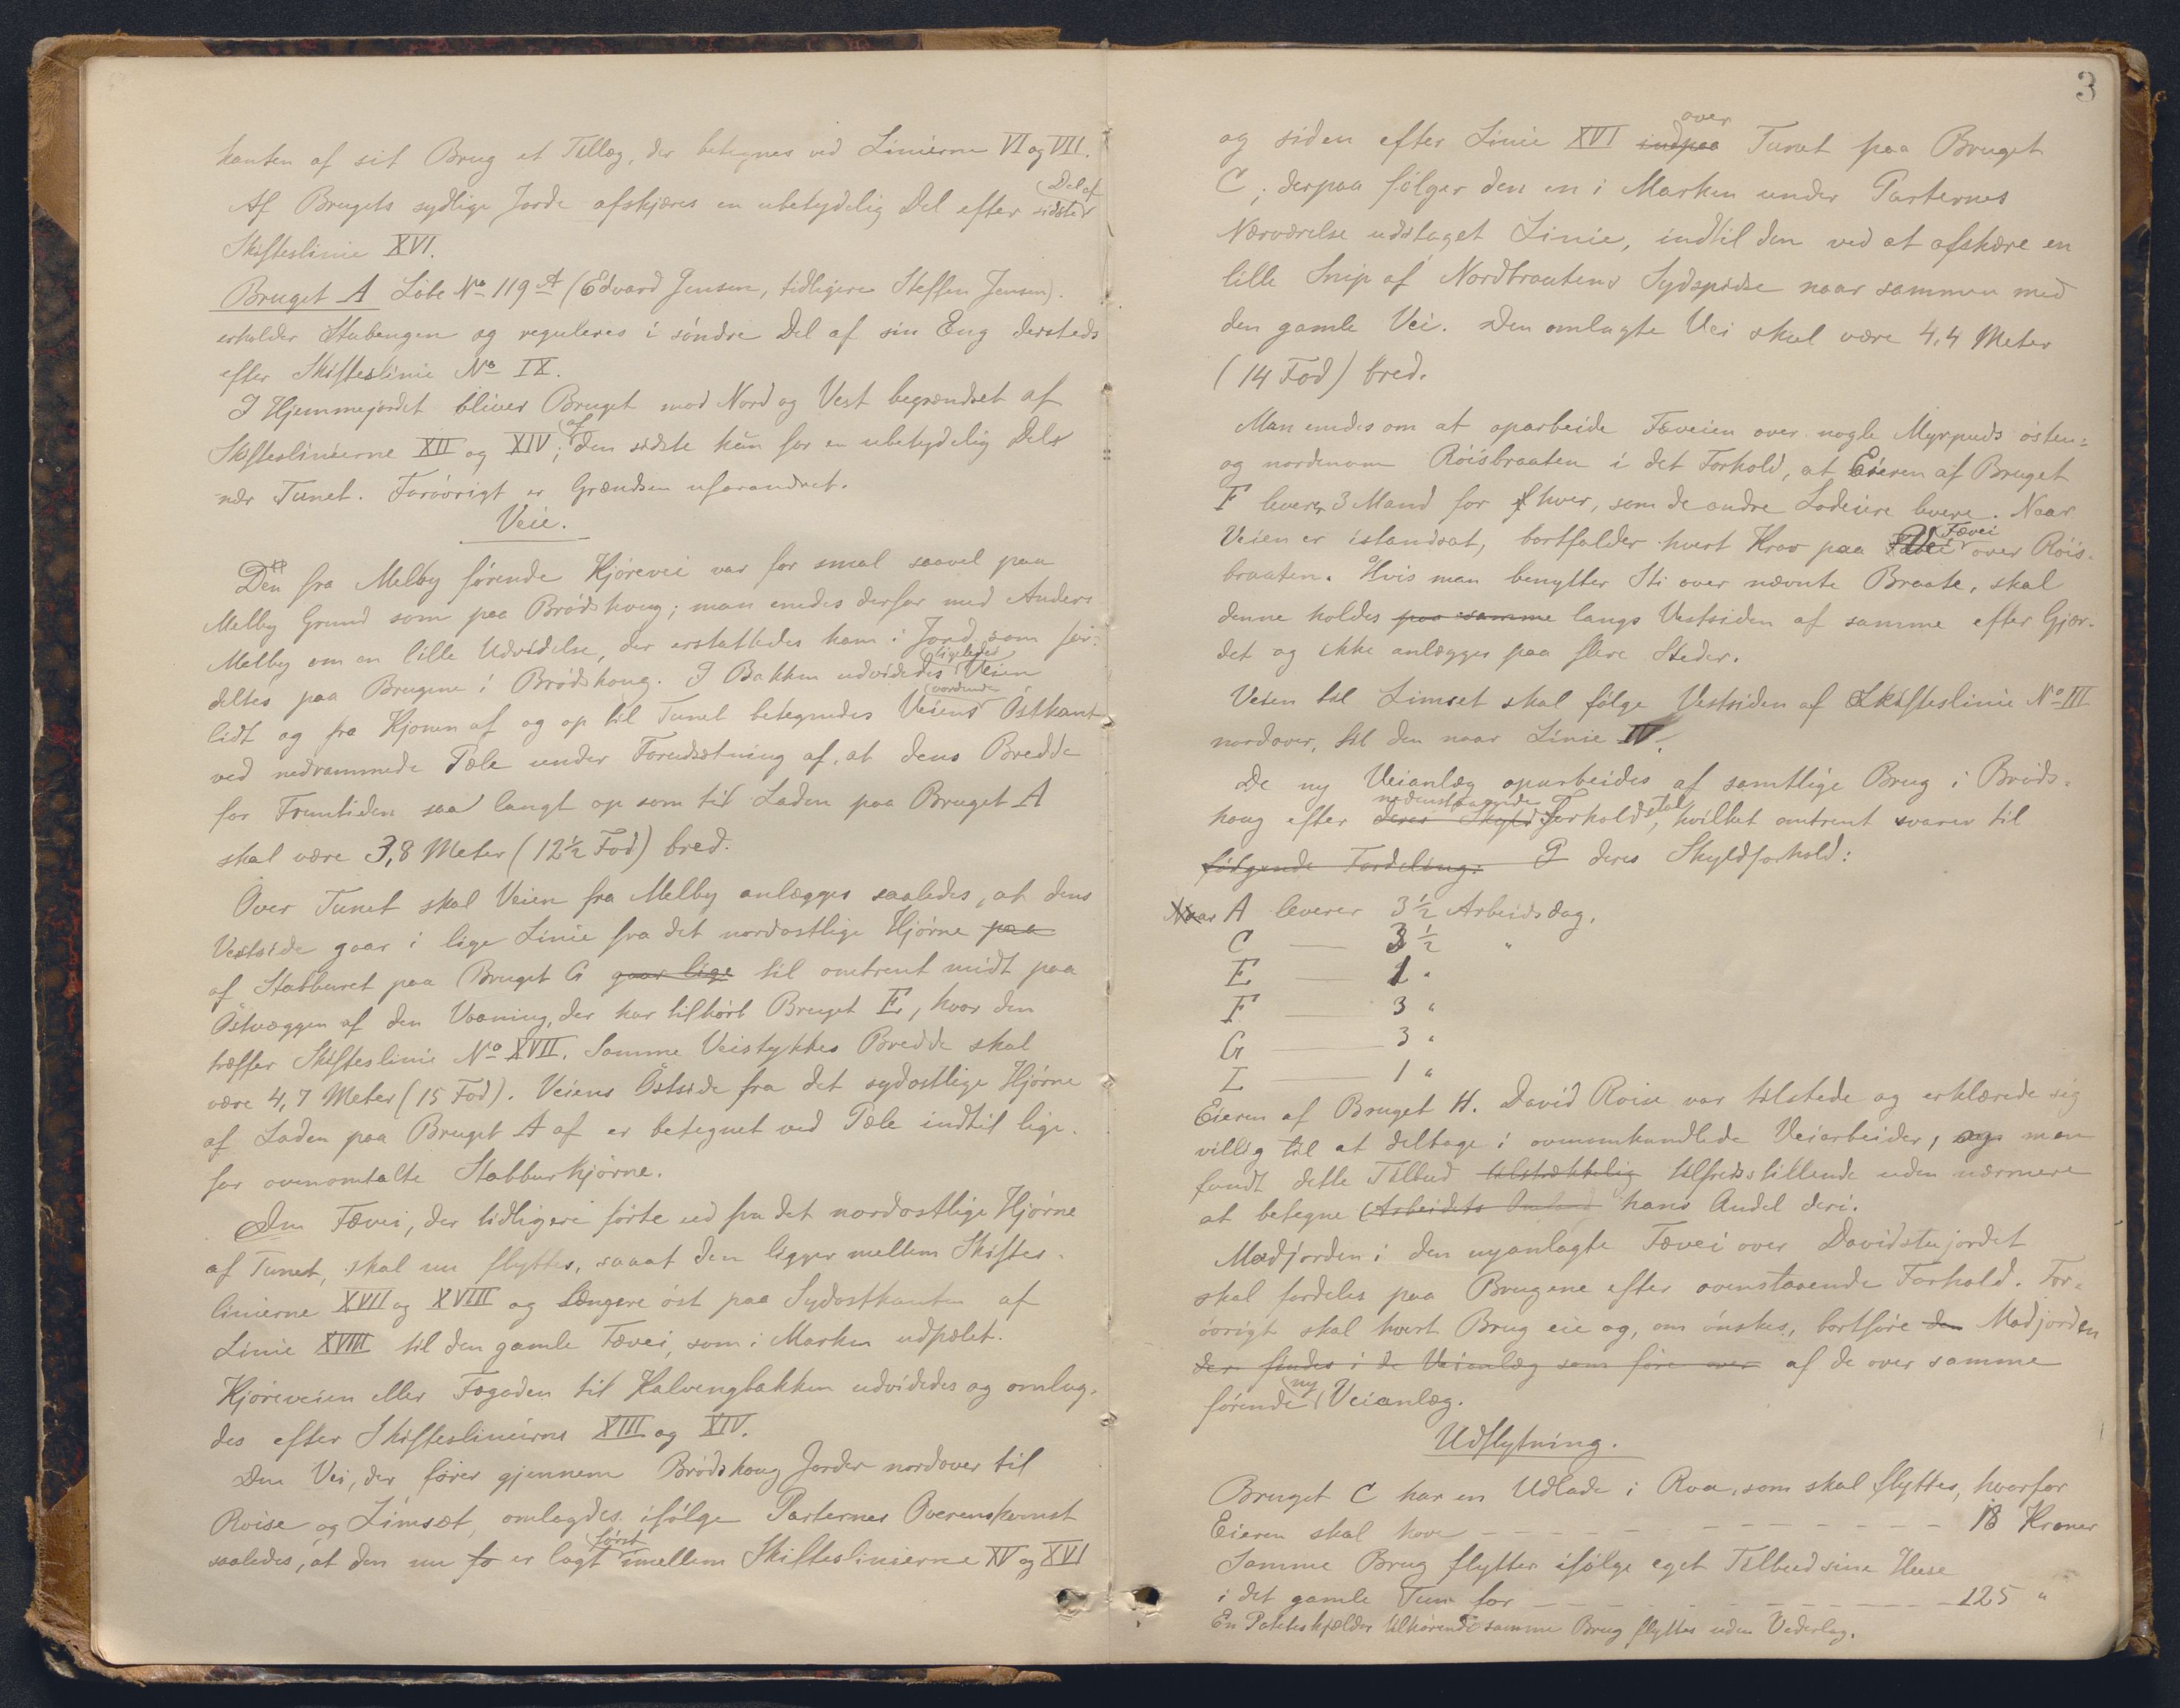 kanten af sit Brug et Tillæg, der betegnes ved Linierne VI og VII.
Af Brugets sydlige Jorde afskjæres en ubetydelig Del efter Del af sidste
Skifteslinie XVI.
Bruget A Löbe No 119 A (Edvard Jensen, tidligere Steffen Jensen).
erholder Stubengen og reguleres i söndre Del af sin Eng dersteds
efter Skifteslinie No IX.
I Hjemmejordet bliver Bruget mod Nord og Vest begrændset af
Skifteslinierne XII og XIV; af den sidste kun for en ubetydelig Del
nær Tunet. Foröurigt er Grændsen uforandret.
Veie.
Den fra Melby förende Kjörevei var for smal saavel paa
Melby Grund som paa Brödshoug; man enedes derfor med Anders
Melby om en lille Udvidelse, der erstattedes ham i Jord, som for-
deltes paa Brugene i Brödshoug. I Bakken udvidedes ligeledes Veien
lidt og fra Kjonen af og op til Tunet betegnedes Veiens vordende Östkant
ved nedrammede Pæle under Forudsætning af, at dens Bredde
for Fremtiden saa langt op som til Laden paa Bruget A
skal være 3,8 Meter (12½ Fod) bred.
Over Tunet skal Veien fra Melby anlægges saaledes, at dens
Vestside gaar i lige Linie fra det nordostlige Hjörne paa
af Stabburet paa Bruget G gaar lige til omtrent midt paa
Östvæggen af den Vaaning, der har tilhört Bruget E, hvor den
træffer Skifteslinie No XVII. Samme Veistykkes Bredde skal
være 4,7 Meter (15 Fod). Veiens Östside fra det sydostlige Hjörne
af Laden paa Bruget A af er betegnet ved Pæle indtil lige-
for ovenomtalte Stabburhjörne.
Den Fævei, der tidligere förte ud fra det nordostlige Hjörne
af Tunet, skal nu flyttes, saaat den ligger mellem Skiftes-
linierne XVII og XVIII og længere öst paa Sydostkanten af
Linie XVIII til den gamle Fævei, som i Marken udpælet.
Kjöreveien eller Fægaden til Kalvengbakken udvidedes og omlag-
des efter Skifteslinierne XIII og XIV.
Den Vei, der förer gjennem Brödshoug Jorder nordover til
Roise og Limsæt, omlagdes ifölge Parternes Overenskomst
saaledes, at den nu fo er lagt först imellem Skifteslinierne XV og XVI
3
og siden efter Linie XVI indpaa over Tunet paa Bruget
C; derpaa fölger den en i Marken under Parternes
Nærværelse udstaget Linie, indtil den ved at afskære en
lille Snip af Nordbraatens Sydspidse naar sammen med
den gamle Vei. Den omlagte Vei skal være 4,4 Meter
(14 Fod) bred.
Man enedes om at oparbeide Fæveien over nogle Myrpuds östen-
og nordenom Röisbraaten i det Forhold, at Eieren af Bruget
F leverer 3 Mand for hver, som de andre Lodeiere levere. Naar
Veien er istandsat, bortfalder hvert Krav paa Fævei over Röis-
braaten. Hvis man benytter Sti over nævnte Braate, skal
denne holdes paa samme langs Vestsiden af samme efter Gjær-
det og ikke anlægges paa flere Steder.
Veien til Limset skal fölge Vestsiden af Skifteslinie No III
nordover, til den naar Linie IV.
De ny Veianlæg oparbeides af samtlige Brug i Bröds-
houg efter deres Skyld nedenstaaende Forholdstal, hvilket omtrent svarer til
fölgende Fordeling: deres Skyldforhold:
Naar A leverer 3½ Arbeidsdag,
C — 3½ "
E — 1 "
F — 3 "
G — 3 "
I — 1 "
Eieren af Bruget H. David Roise var tilstede og erklærede sig
villig til at deltage i ovenomhandlede Veiarbeider, og man
fandt dette Tilbud tilstrækkelig tilfredsstillende uden nærmere
at betegne Arbeidets hans Andel deri.
Madjorden i den nyanlagte Fævei over Davidstujordet
skal fordeles paa Brugene efter ovenstaaende Forhold. For-
övrigt skal hvert Brug eie og, om önskes, bortföre den Madjorden
der findes i de Veianlæg som före over af de over samme
förende ny Veianlæg.
Udflytning.
Bruget C har en Udlade i Roa, som skal flyttes, hvorfor
Eieren skal have — 18 Kroner
Samme Brug flytter ifölge eget Tilbud sine Huse
i det gamle Tun for — 125 "
En Poteteskjælder tilhörende samme Brug flyttes uden Vederlag.